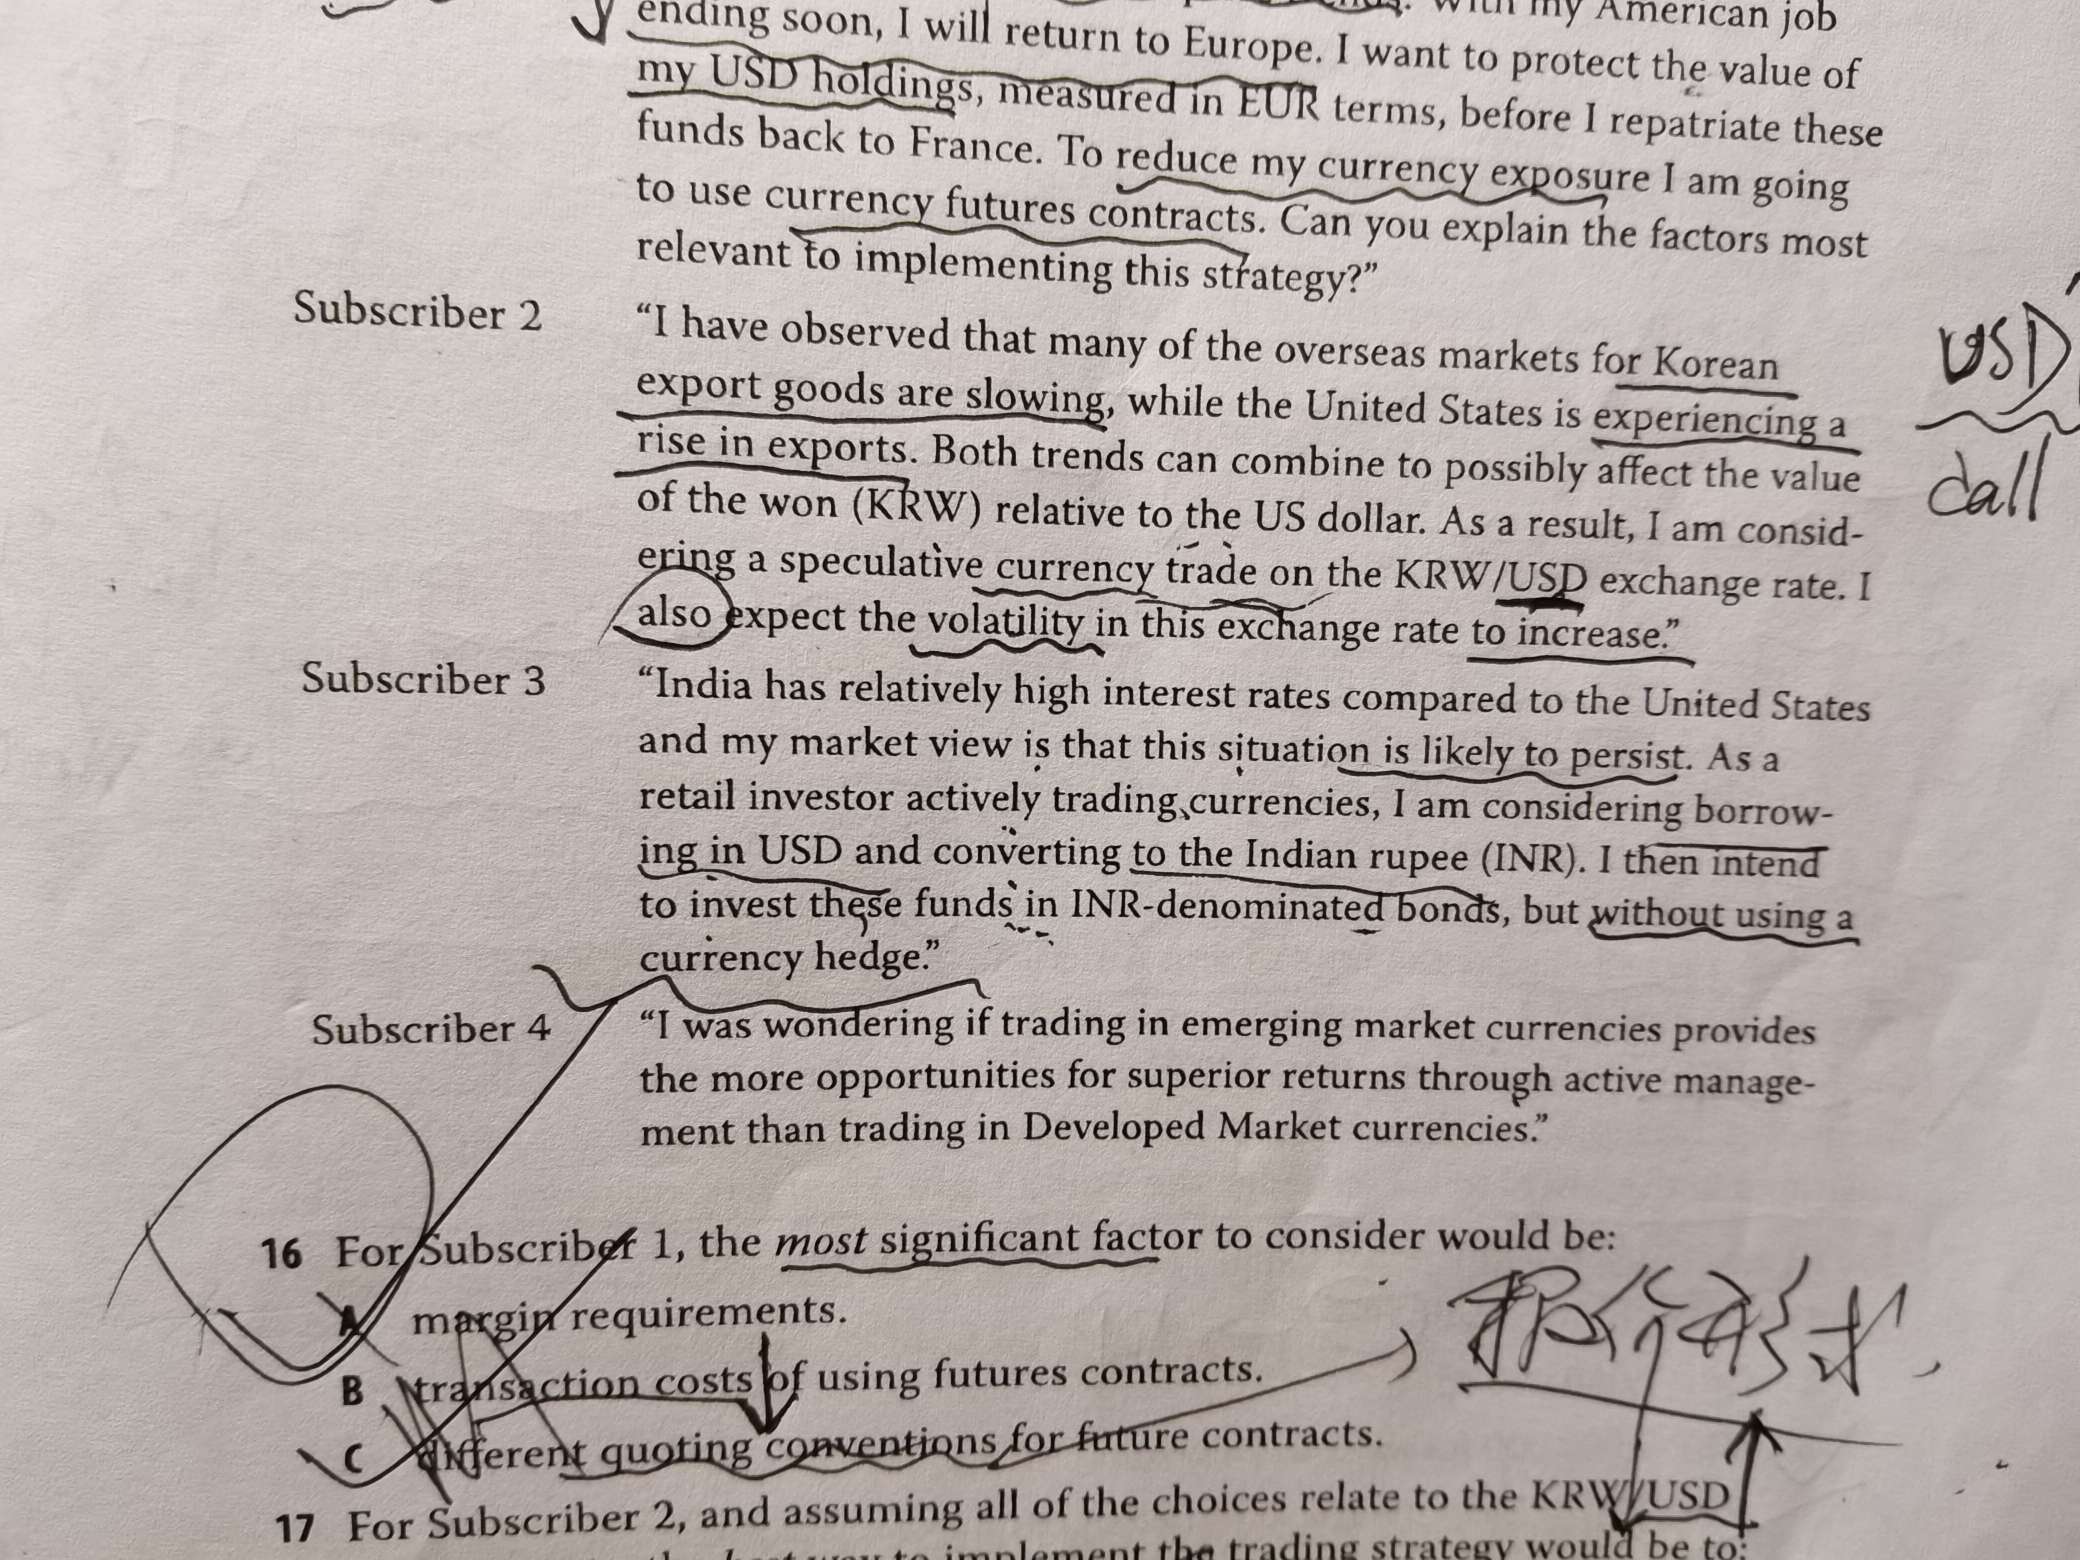 ending soon, I will return to Europe. I want to protect the value of
with my American job
my USD holdings, measured in EUR terms, before I repatriate these
funds back to France. To reduce my currency exposure I am going
to use currency futures contracts. Can you explain the factors most
relevant to implementing this strategy?”
Subscriber 2 “I have observed that many of the overseas markets for Korean
export goods are slowing, while the United States is experiencing a
rise in exports. Both trends can combine to possibly affect the value
of the won (KRW) relative to the US dollar. As a result, I am consid-
ering a speculative currency trade on the KRW/USD exchange rate. I
also expect the volatility in this exchange rate to increase.”
USD
call
Subscriber 3 “India has relatively high interest rates compared to the United States
and my market view is that this situation is likely to persist. As a
retail investor actively trading currencies, I am considering borrow-
ing in USD and converting to the Indian rupee (INR). I then intend
to invest these funds in INR-denominated bonds, but without using a
currency hedge.”
Subscriber 4 “I was wondering if trading in emerging market currencies provides
the more opportunities for superior returns through active manage-
ment than trading in Developed Market currencies.”
16 For Subscriber 1, the most significant factor to consider would be:
A margin requirements.
B transaction costs of using futures contracts.
C different quoting conventions for future contracts.
17 For Subscriber 2, and assuming all of the choices relate to the KRW/USD
way to implement the trading strategy would be to: